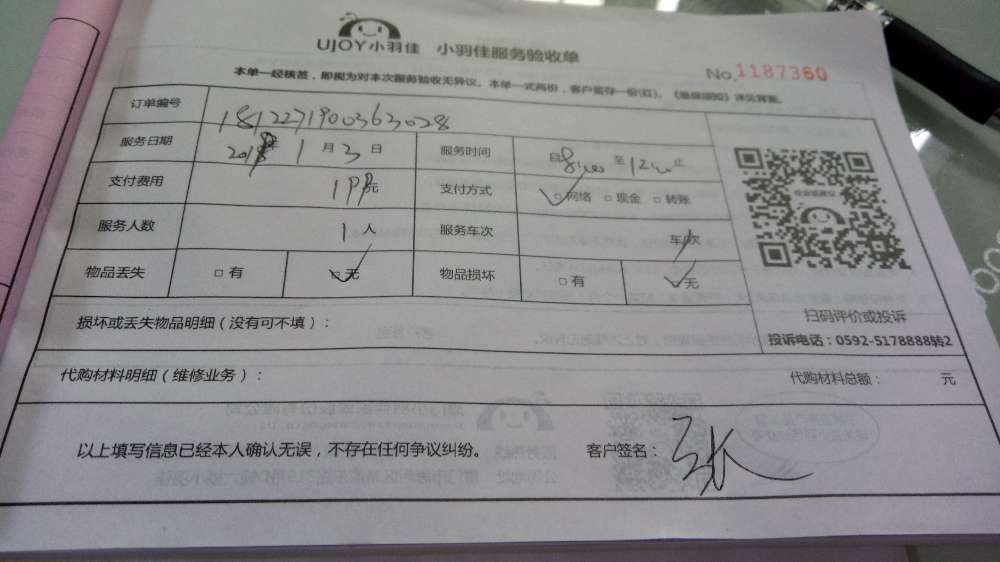 UJOY小羽佳 小羽佳服务验收单
No.1187360
本单一经核签，即视为对本次服务验收无异议。本单一式两份，客户留存一份(红)。
订单编号 1812271900363028
服务日期 2018年1月3日 服务时间 自8:00至12:00止
支付费用 199元 支付方式 □网络 □现金 □转账
服务人数 1人 服务车次 车/次
物品丢失 □有 □无 物品损坏 □有 □无
扫码评价或投诉
损坏或丢失物品明细（没有可不填）：
投诉电话：0592-5178888转2
代购材料明细（维修业务）： 代购材料总额： 元
以上填写信息已经本人确认无误，不存在任何争议纠纷。 客户签名：